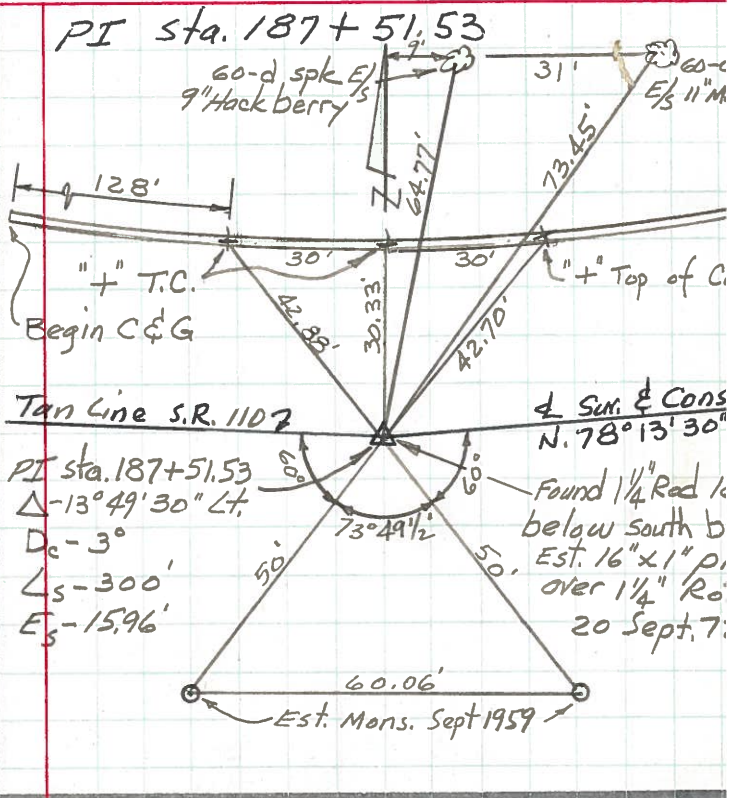 PI Sta. 187+51.53
9'
60-d spk E/s
9" Hackberry
31'
60-d
E/s 11" M
128'
64.77'
73.45'
30'
30'
"+" T.C.
"+" Top of C
Begin C&G
42.88'
30.33'
42.70'
Tan Line S.R. 110
℄ Sur. & Cons
N. 78° 13' 30"
PI sta. 187+51.53
Δ-13°49'30" Lt.
Dc-3°
Ls-300'
Es-15.96'
60°
60°
73°49½'
50'
50'
Found 1¼" Rod
below south b
Est. 16" x 1" p
over 1¼" Ro
20 Sept. 7
60.06'
Est. Mons. Sept 1959